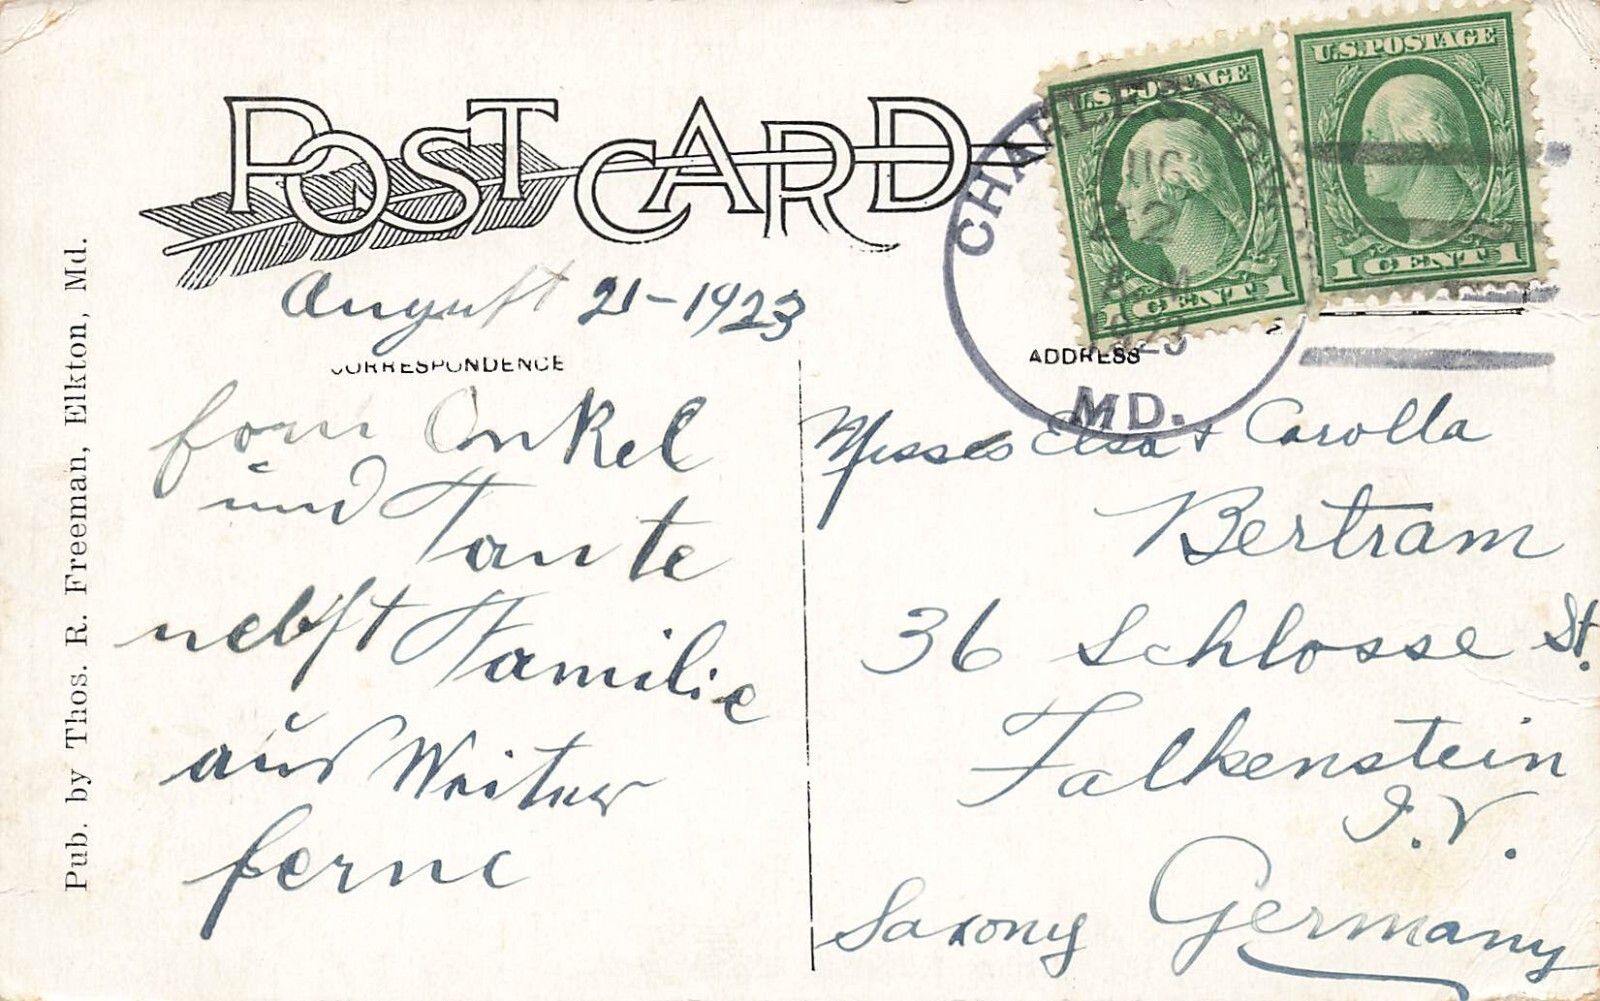 POST CARD
U.S. POSTAGE
1 CENT 1
U.S. POSTAGE
1 CENT 1
AUG
22
A M
1923
MD.
August 21-1923
CORRESPONDENCE
ADDRESS
fom Onkel
und Tante
nebst Familie
aus Weiter
ferne
Misses Elsa + Carolla
Bertram
36 Schlosse St.
Falkenstein
I.V.
Saxony Germany
Pub. by Thos. R. Freeman, Elkton, Md.